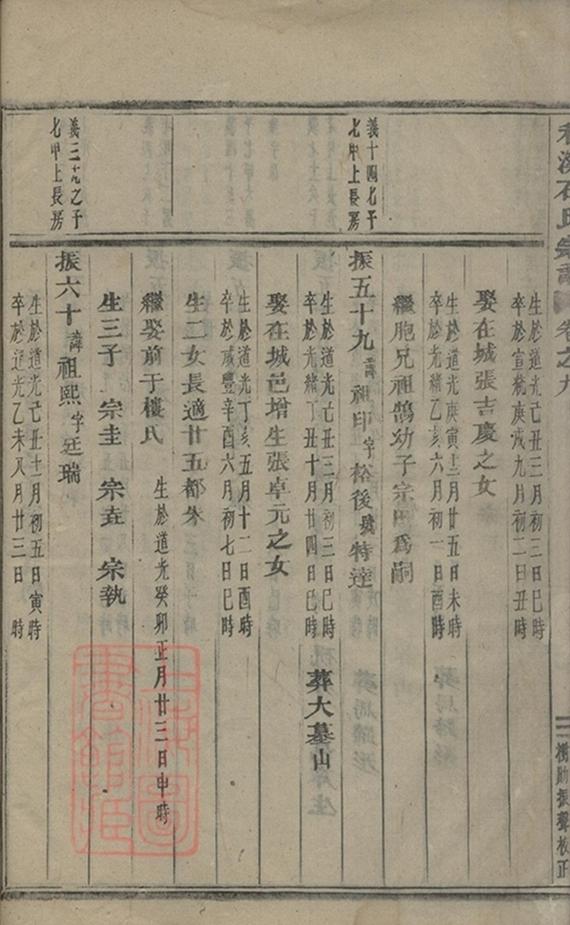 石氏宗譜 卷之九
衡助振聲校正
生於道光己丑三月初三日巳時
卒於宣統庚戌九月初二日丑時
娶在城張吉慶之女
生於道光庚寅十二月廿五日未時
卒於光緒乙亥六月初一日酉時
繼胞兄祖鵠幼子宗田為嗣
義十四七子
七甲上長房
振五十九 諱祖印字裕後號特達
生於道光己丑三月初三日巳時
卒於光緒丁丑十月廿四日巳時 葬大墓山
娶在城邑增生張卓元之女
生於道光丁亥五月十二日酉時
卒於咸豐辛酉六月初七日巳時
生二女長適廿五都朱
繼娶前于樓氏 生於道光癸卯正月廿三日申時
生三子 宗圭 宗壵 宗執
義三 之子
七甲上長房
振六十 諱祖熙字廷瑞
生於道光己丑十一月初五日寅時
卒於道光乙未八月廿三日 時
上海圖書館藏